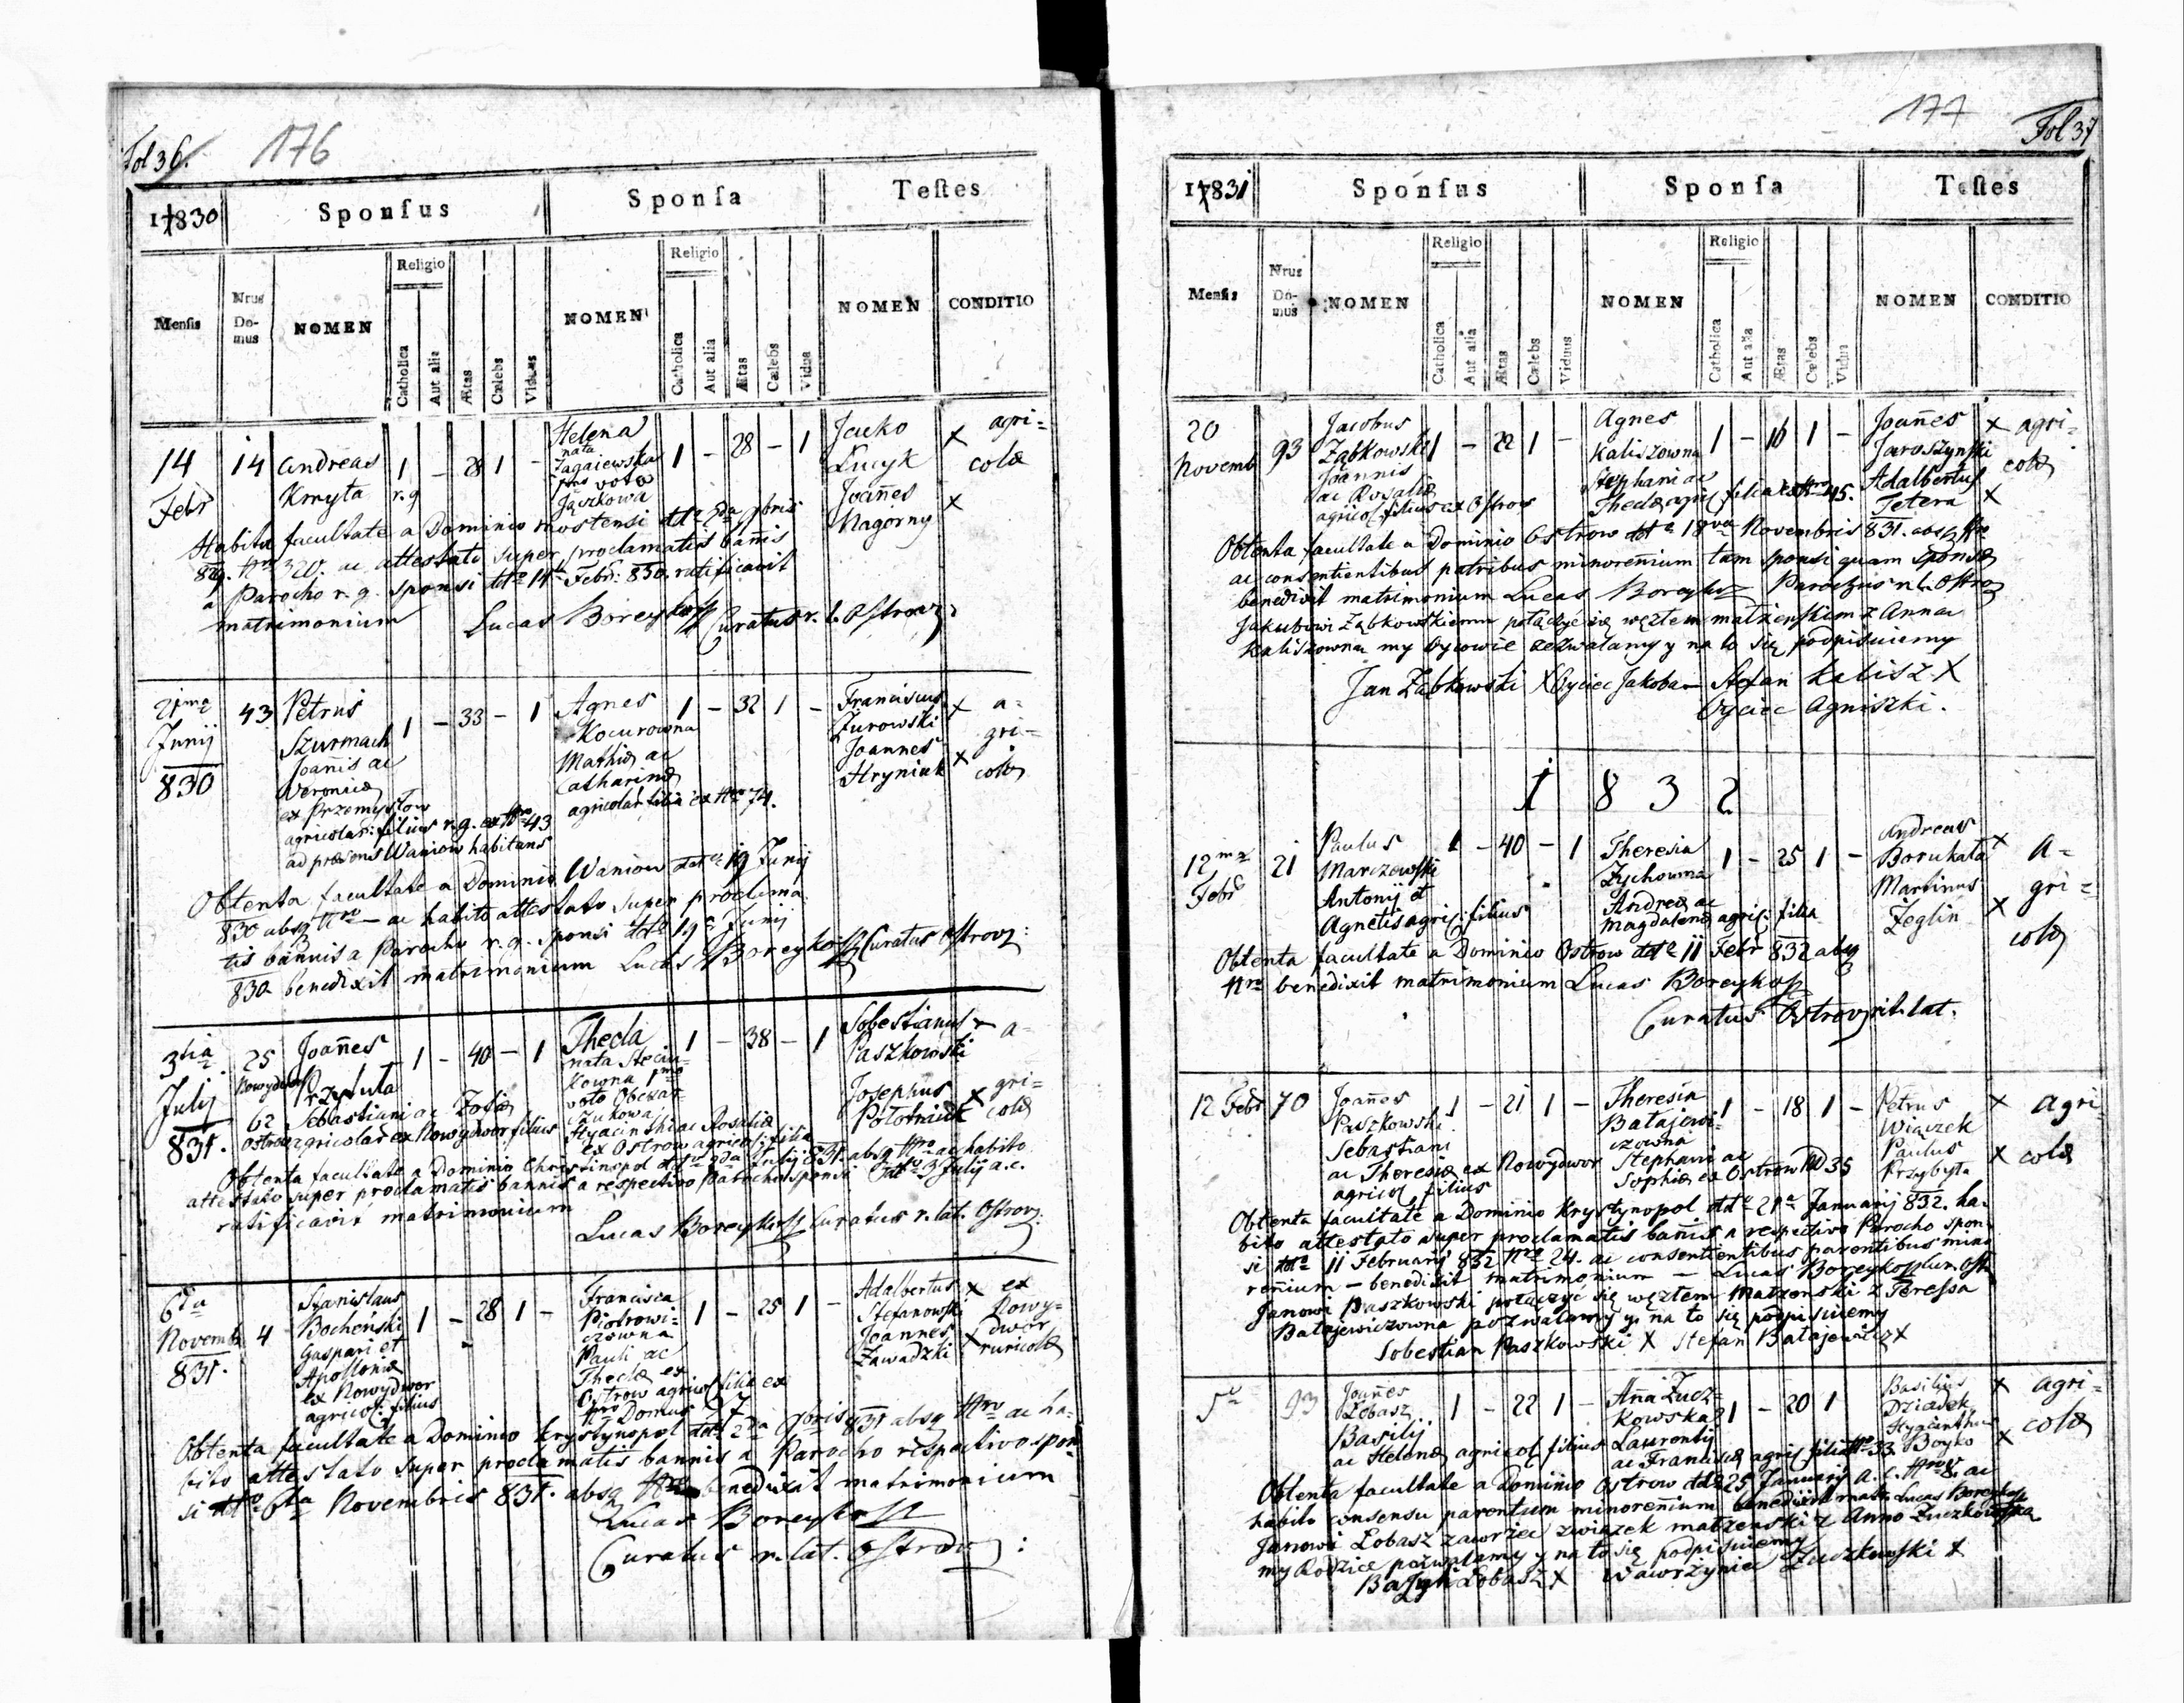 Fol 36. 176
17830 Sponſus Sponſa Teſtes
Menſis Nrus Do- mus NOMEN Religio Catholica Aut alia Ætas Cælebs Viduus NOMEN Religio Catholica Aut alia Ætas Cælebs Vidua NOMEN CONDITIO
14 Febr 14 Andreas 1 – 28 1 – Helena 1 – 28 – 1 Jacko X agri=
Kmyta r. g nata Zagaiewska Lucyk colæ
pmo voto Joañes X
Jaszkowa Nagorny
Habita facultate a Dominio mostensi
829. Nro 320. ac attestato super proclamatis bañis
a Parocho r. g. sponsi ddto 14 Febr: 830. ratificavit
matrimonium Lucas Boreyko Curatus r. l. Ostrov:
21ma Junij 830 43 Petrus 1 – 33 – 1 Agnes 1 – 32 1 – Franciscus X a=
Szurmach Kocurowna Zurowski gri=
Joañis ac Mathiæ ac Joannes X colæ
Veronicæ Catharinæ Hryniuk
ex Przemysłow agricolar: filia ex Nro 74.
agricolar: filius r. g. ex Nro 43
ad præsens Waniow habitans
Obtenta facultate a Dominio Waniow ddto 19 Junij
830 absq Nro – ac habito attestato super proclama
tis bannis a Parocho r. g. Sponsi ddto 19a Junij
830 benedixit matrimonium Lucas Boreyko Curatus Ostrov:
3tia Julij 831. 25 Joañes 1 – 40 – 1 Thecla 1 – 38 – 1 Sobestianus X a=
Nowydwor Przybyta nata Steciu= Paszkowski
62 Sebastiani ac Zofiæ kowna pmo Josephus X gri=
Ostrow agricolar ex Nowydwor filius voto colæ
Hyacinthi ac Rosaliæ
ex Ostrow agricol: filia
Obtenta facultate a Dominio Christinopol ddto 2da Julij 831. absq Nro ac habito
attestato super proclamatis bannis a respectivo Parocho sponsi ddto 3 Julij a. c.
ratificavit matrimonium
Lucas Boreyko Curatus r. lat. Ostrov:
6ta Novemb 831. 4 Stanislaus 1 – 28 1 – Francisca 1 – 25 1 – Adalbertus X ex
Bochenski Piotrowi= Stefanowski Nowy=
Gaspari et czowna Joannes X dwor
Apolloniæ Pauli ac Zawadzki ruricolæ
ex Nowydwor Theclæ ex
agricol: filius Ostrow agricol filia ex
Nro Domus 97
Obtenta facultate a Dominio Krystynopol ddto 2da 9bris 831 absq Nro ac ha=
bito attestato super proclamatis bannis a Parocho respectivo spon
si ddto 6ta Novembris 831. absq Nro benedixit matrimonium
Lucas Boreyko
Curatus r. lat. Ostrov:
177 Fol 37
17831 Sponſus Sponſa Teſtes
Menſis Nrus Do- mus NOMEN Religio Catholica Aut alia Ætas Cælebs Viduus NOMEN Religio Catholica Aut alia Ætas Cælebs Vidua NOMEN CONDITIO
20 Novemb 93 Jacobus 1 – 22 1 – Agnes 1 – 16 1 – Joañes X agri=
Ząbkowski Kaliszowna Jaroszynski colæ
Joannis Stephani ac Adalbertus
ac Rosaliæ Theclæ agric filia ex Nro 45. Tetera X
agricol filius ex Ostrow
Obtenta facultate a Dominio Ostrow ddto 18va Novembris 831. absq Nro
ac consentientibus patribus minorenium tam sponsi quam sponsæ
benedixit matrimonium Lucas Boreyko Parochus r. l. Ostrov
Jakubowi Ząbkowskiemu połączyć się węzłem małżenskim z Anna
Kaliszowna my Oycowie zezwalamy y na to się podpisuiemy
Jan Ząbkowski X Oyciec Jakoba – Stefan Kalisz X
Oyciec Agniszki.
1 8 3 2
12ma Febr 21 Paulus 1 – 40 – 1 Theresia 1 – 25 1 – Andreas X a=
Marczewski Zychowna Borukata
Antonij et Andreæ ac Martinus X gri=
Agnetis agric: filius Magdalenæ agric: filia Żeglin colæ
Obtenta facultate a Dominio Ostrow ddto 11 Febr 832 absq
Nro benedixit matrimonium Lucas Boreyko
Curatus Ostrov rit. lat.
12 Febr 70 Joañes 1 – 21 1 – Theresia 1 – 18 1 – Petrus X agri
Paszkowski Batajewi= Wiączek
Sebastiani czowna Paulus X colæ
ac Theresiæ ex Nowydwor Stephani ac Przybyta
agricol filius Sophiæ ex Ostrow ND 35
Obtenta facultate a Dominio Krystynopol ddto 21a Januarij 832. ha=
bito attestato super proclamatis bañis a respectivo Parocho spon
si ddto 11 Februarij 832 Nro 24. ac consentientibus parentibus mino
renium – benedixit matrimonium – Lucas Boreyko
Janowi Paszkowski połączyć się węzłem Małzenski z Teressa
Batajewiczowna pozwalamy y na to się podpisuiemy
Sobestian Paszkowski X Stefan Batajewicz X
93 Joañes 1 – 22 1 – Aña Zucz= 1 – 20 1 Basilius X agri=
Łobasz kowska Dziadek
Basilij Laurentij Hyacinthus X colæ
ac Helenæ agricol filius ac Franciscæ agric filia Nro 33 Boyko
Obtenta facultate a Dominio Ostrow ddto 25 Januarij a. c. Nro 8. ac
habito consensu parentum minorenium benedixit matr: Lucas Boreyko
Janowi Łobasz zawrzec związek małzenski z Anno Zuczkowska
my Rodzice pozwalamy y na to się podpisuiemy
Basyli Łobasz X Wawrzyniec Zuczkowski X